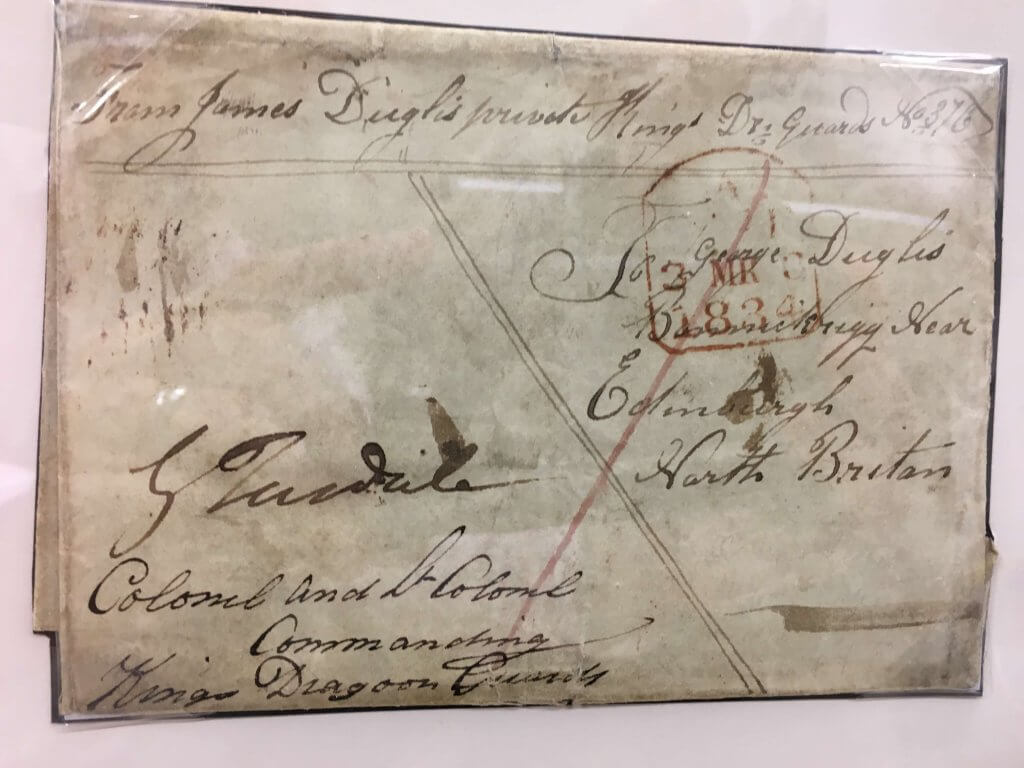 From James Duglis private Kings Drn Guards No 376
To George Duglis
Near
Edinburgh
North Britan
3 MR 3
1834
Colonel and Lt Colonel
Commanding
Kings Dragoon Guards